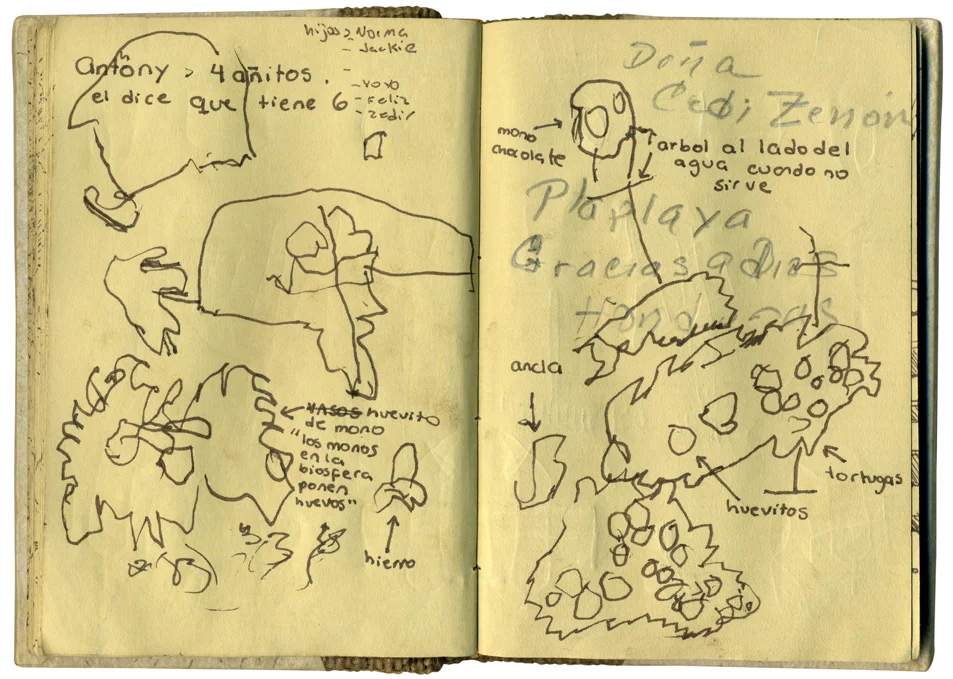 hijos > Norma
- Jackie
-
- Yoyo
- Feliz
Anthony > 4 añitos.
el dice que tiene 6
VASOS huevito
de mono
"los monos
en la
biosfera
ponen
huevos"
hierro
Doña
Cedi Zenón
mono
chocolate
arbol al lado del
agua cuando no
sirve
Plaplaya
Gracias a Dios
Honduras
ancla
tortugas
huevitos